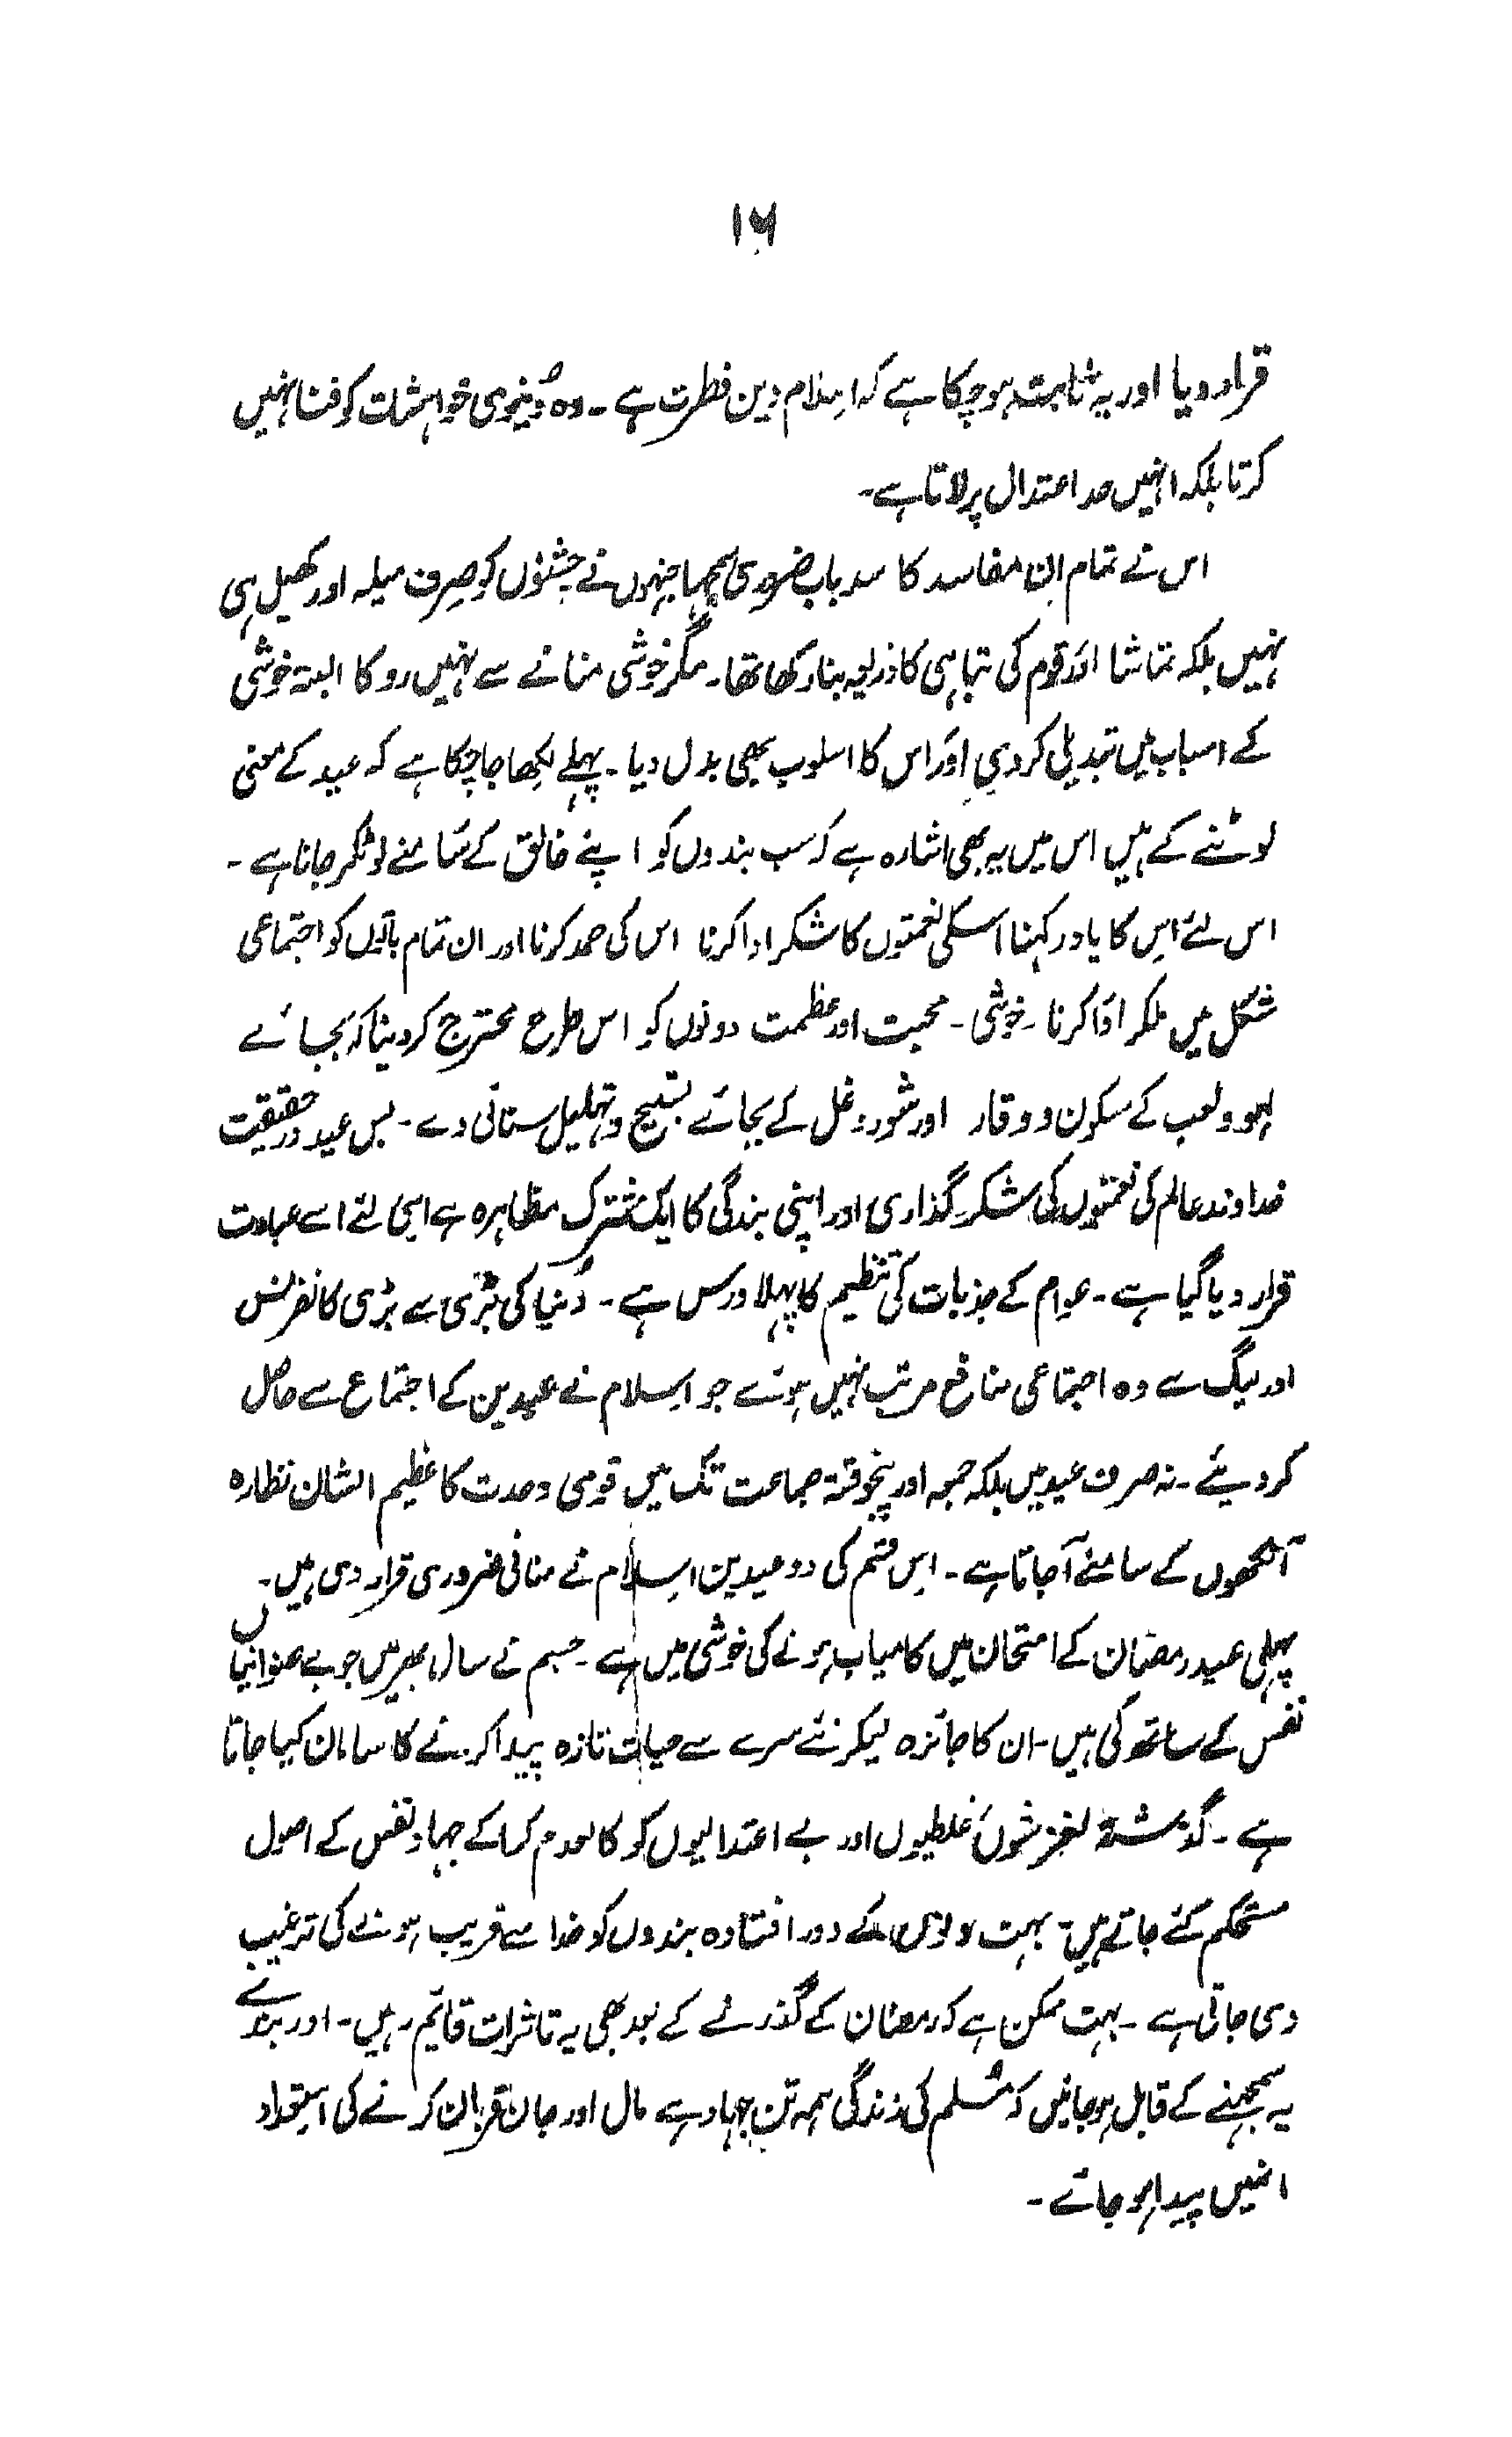 ۱۶
قرار دیا اور یہ ثابت ہو چکا ہے کہ اسلام دین فطرت ہے ۔ وہ دُنیوی خواہشات کو فنا نہیں
کرتا بلکہ انہیں حد اعتدال پر لاتا ہے ۔
اس نے تمام اِن مفاسد کا سدباب ضروری سمجہا جنہوں نے جشنوں کو صِرف میلہ اور کھیل ہی
نہیں بلکہ تماشا اور قوم کی تباہی کا ذریعہ بنا رکھا تھا ۔ مگر خوشی منانے سے نہیں روکا البتہ خوشی
کے اسباب میں تبدیلی کردی اور اس کا اسلوب بھی بدل دیا ۔ پہلے لکھا جا چکا ہے کہ عید کے معنی
لوٹنے کے ہیں اس میں یہ بھی اشارہ ہے کہ سب بندوں کو اپنے خالق کے سامنے لوٹکر جانا ہے ۔
اس لئے اس کا یاد رکہنا اسکی نعمتوں کا شکر ادا کرنا اس کی حمد کرنا اور ان تمام باتوں کو اجتماعی
شکل میں ملکر ادا کرنا ۔ خوشی ۔ محبت اور عظمت دونوں کو اس طرح ممتزج کردینا کہ بجائے
لہو و لعب کے سکون و وقار اور شور و غل کے بجائے تسبیح و تہلیل سنائی دے ۔ پس عید درحقیقت
خداوند عالم کی نعمتوں کی شکر گذاری اور اپنی بندگی کا ایک مشترک مظاہرہ ہے اسی لئے اسے عبادت
قرار دیا گیا ہے ۔ عوام کے جذبات کی تنظیم کا پہلا درس ہے ۔ دُنیا کی بڑی سے بڑی کانفرنس
اور لیگ سے وہ اجتماعی منافع مرتب نہیں ہوئے جو اسلام نے عیدین کے اجتماع سے حاصل
کر دیئے ۔ نہ صرف عید میں بلکہ جمعہ اور پنجوقتہ جماعت تک میں قومی وحدت کا عظیم الشان نظارہ
آنکھوں کے سامنے آجاتا ہے ۔ اِس قسم کی دو عیدین اسلام نے منانی ضروری قرار دی ہیں ۔
پہلی عید رمضان کے امتحان میں کامیاب ہونے کی خوشی میں ہے ۔ جسم نے سال بھر میں جو بے عنوانیاں
نفس کے ساتھ کی ہیں ۔ ان کا جائزہ لیکر نئے سرے سے حیات تازہ پیدا کرنے کا سامان کیا جاتا
ہے ۔ گذشتہ لغزشوں غلطیوں اور بے اعتدالیوں کو کالعدم کراکے جہاد نفس کے اصول
مستحکم کئے جاتے ہیں ۔ بہت دنوں کے دور افتادہ بندوں کو خدا سے قریب ہونے کی ترغیب
دی جاتی ہے ۔ بہت ممکن ہے کہ رمضان کے گذرنے کے بعد بھی یہ تاثرات قائم رہیں ۔ اور بندے
یہ سمجہنے کے قابل ہو جائیں کہ مُسلم کی زندگی ہمہ تن جہاد ہے مال اور جان قربان کرنے کی استعداد
انہیں پیدا ہو جائے ۔